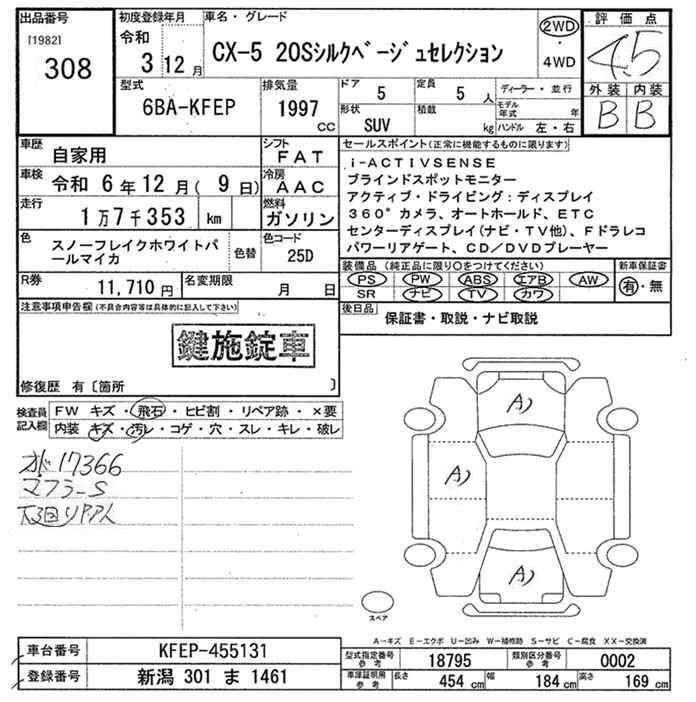 出品番号
[1982]
308
初度登録年月
令和
3 12 月
車名・グレード
CX-5 20Sシルクベージュセレクション
2WD
・
4WD
評価点
4.5
外装 内装
B B
型式
6BA-KFEP
排気量
1997
cc
ドア
5
定員
5 人
形状
SUV
積載
kg
ディーラー・並行
モデル年式 年
ハンドル 左・右
車歴
自家用
シフト
FAT
車検
令和 6年12月( 9日)
冷房
AAC
走行
1万7千353 km
燃料
ガソリン
色
スノーフレイクホワイトパールマイカ
色替
色コード
25D
R券
11,710円
名変期限
月 日
セールスポイント(正常に機能するものに限ります)
i-ACTIVSENSE
ブラインドスポットモニター
アクティブ・ドライビング:ディスプレイ
360°カメラ、オートホールド、ETC
センターディスプレイ(ナビ・TV他)、Fドラレコ
パワーリアゲート、CD/DVDプレーヤー
装備品(純正品に限り○をつけてください)
PS PW ABS エアB AW
SR ナビ TV カワ
新車保証書
有・無
後日品
保証書・取説・ナビ取説
注意事項申告欄(不具合内容等は具体的に記入して下さい)
鍵施錠車
修復歴 有〔箇所 〕
検査員記入欄
FW キズ・飛石・ヒビ割・リペア跡・×要
内装 キズ・汚レ・コゲ・穴・スレ・キレ・破レ
17366
マフラーS
A)
A)
A)
スペア
A-キズ E-エクボ U-凹み W-補修跡 S-サビ C-腐食 XX-交換済
車台番号
KFEP-455131
登録番号
新潟 301 ま 1461
型式指定番号参考
18795
類別区分番号参考
0002
車庫証明用参考
長さ 454 cm
幅 184 cm
高さ 169 cm